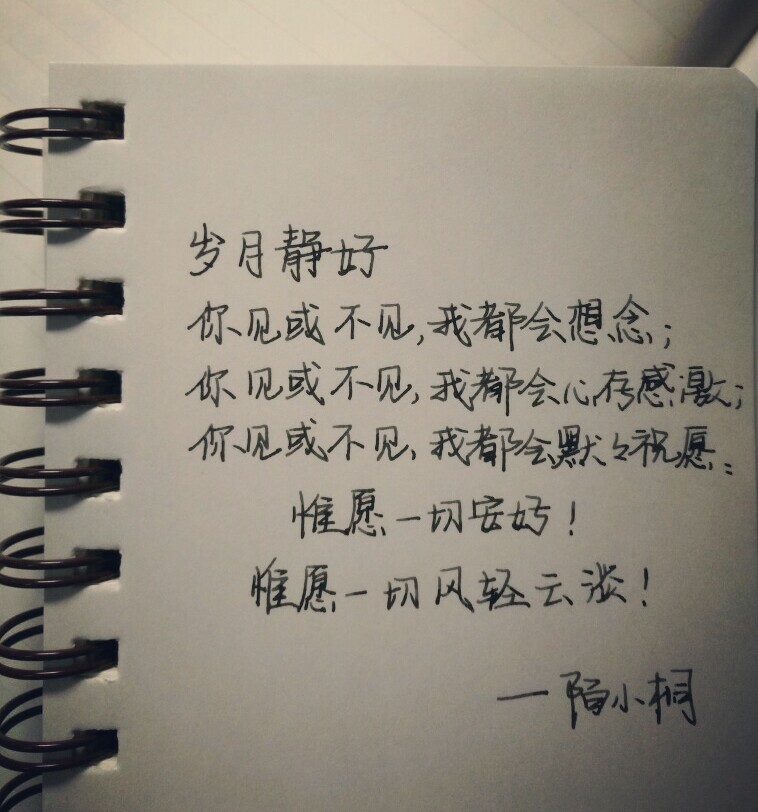 岁月静好
你见或不见,我都会想念;
你见或不见,我都会心存感激;
你见或不见,我都会默々祝愿。
惟愿一切安好!
惟愿一切风轻云淡!
—陌小桐